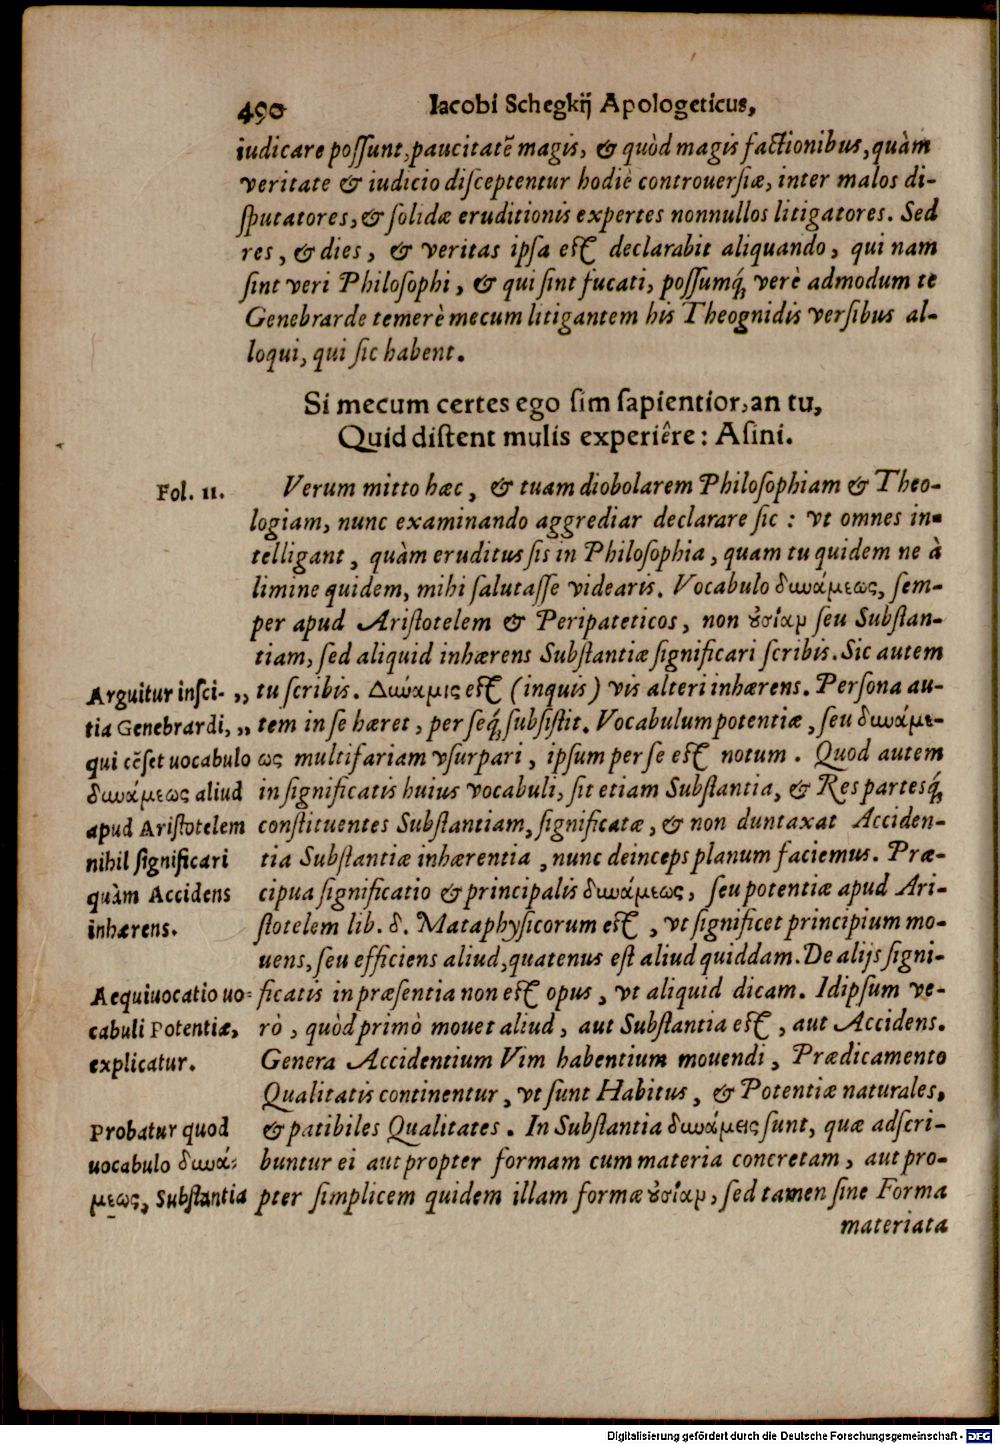 490 Iacobi Schegkij Apologeticus,
iudicare poſſunt, paucitatē magis, & quòd magis factionibus, quàm
veritate & iudicio diſceptentur hodiè controuerſiæ, inter malos di-
ſputatores, & ſolidæ eruditionis expertes nonnullos litigatores. Sed
res, & dies, & veritas ipſa eſt declarabit aliquando, qui nam
ſint veri Philoſophi, & qui ſint fucati, poſſumq́; verè admodum te
Genebrarde temerè mecum litigantem his Theognidis verſibus al-
loqui, qui ſic habent.
Si mecum certes ego ſim ſapientior, an tu,
Quid diſtent mulis experiêre: Aſini.
Fol. 11.
Verum mitto hæc, & tuam diobolarem Philoſophiam & Theo-
logiam, nunc examinando aggrediar declarare ſic: vt omnes in-
telligant, quàm eruditus ſis in Philoſophia, quam tu quidem ne à
limine quidem, mihi ſalutaſſe videaris. Vocabulo δυνάμεως, ſem-
per apud Ariſtotelem & Peripateticos, non ȣσίαμ ſeu Subſtan-
tiam, ſed aliquid inhærens Subſtantiæ ſignificari ſcribis. Sic autem
„ tu ſcribis. Δύναμις eſt (inquis) vis alteri inhærens. Perſona au-
„ tem in ſe hæret, per ſeq́; ſubſiſtit. Vocabulum potentiæ, ſeu δυνάμε-
ως multifariam vſurpari, ipſum per ſe eſt notum. Quod autem
in ſignificatis huius vocabuli, ſit etiam Subſtantia, & Res partesq́;
conſtituentes Subſtantiam, ſignificatæ, & non duntaxat Acciden-
tia Subſtantiæ inhærentia, nunc deinceps planum faciemus. Præ-
cipua ſignificatio & principalis δυνάμεως, ſeu potentiæ apud Ari-
ſtotelem lib. δ. Mataphyſicorum eſt, vt ſignificet principium mo-
uens, ſeu efficiens aliud, quatenus eſt aliud quiddam. De alijs ſigni-
ficatis in præſentia non eſt opus, vt aliquid dicam. Idipſum ve-
rò, quòd primò mouet aliud, aut Subſtantia eſt, aut Accidens.
Genera Accidentium Vim habentium mouendi, Prædicamento
Qualitatis continentur, vt ſunt Habitus, & Potentiæ naturales,
& patibiles Qualitates. In Subſtantia δυνάμεις ſunt, quæ adſcri-
buntur ei aut propter formam cum materia concretam, aut pro-
pter ſimplicem quidem illam formæ ȣσίαμ, ſed tamen ſine Forma
materiata
Arguitur inſci-
tia Genebrardi,
qui cēſet uocabulo
δυνάμεως aliud
apud Ariſtotelem
nihil ſignificari
quàm Accidens
inhærens.
Aequiuocatio uo-
cabuli Potentiæ,
explicatur.
Probatur quod
uocabulo δυνά-
μεως, Subſtantia
Digitalisierung gefördert durch die Deutsche Forschungsgemeinschaft - DFG